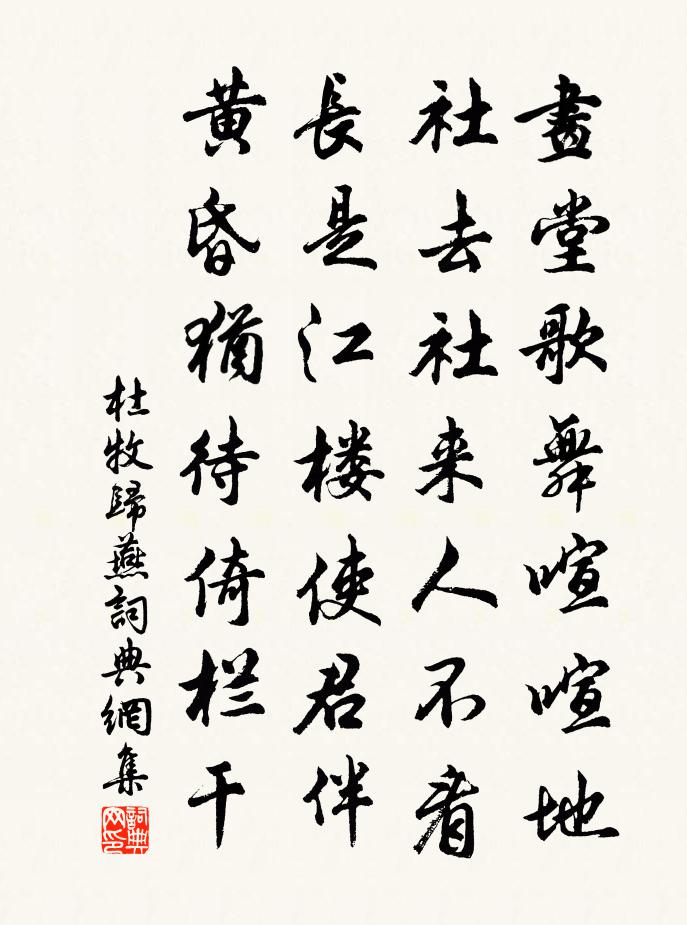 畫堂歌舞喧喧地
社去社来人不看
長是江楼使君伴
黃昏猶待倚栏干
杜牧歸燕詞典網集
詞典网印